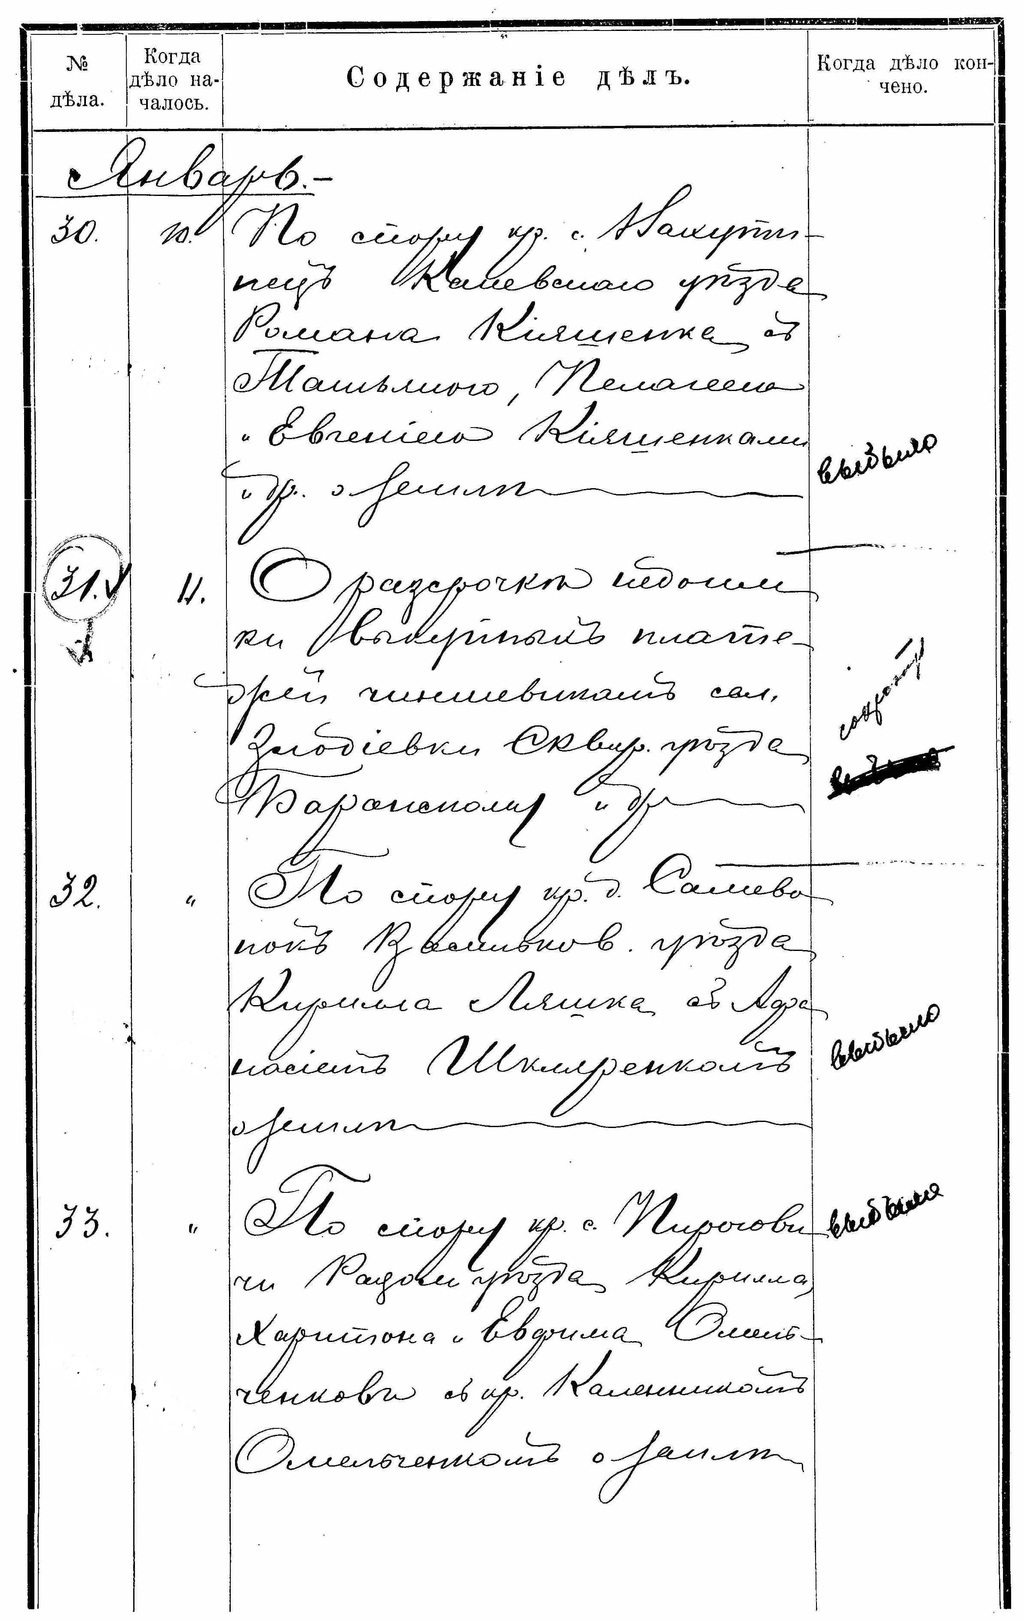 № дѣла.
Когда дѣло на-
чалось.
Содержаніе дѣлъ.
Когда дѣло кон-
чено.
Январь.-
30. 10. По спору кр. с.
пецъ Каневскаго уѣзда
Романа Кіяшенка съ
Татьяною, Пелагеею
и Евгеніею Кіяшенками
и др. о землѣ
выбыло
31. 11. О разсрочкѣ недоим
ки выкупныхъ плате-
жей чиншевикамъ сел.
Злодіевки Сквир. уѣзда
Баранскому и др
32. " По спору кр. д. Саливо
нокъ Васильков. уѣзда
Кирилла Ляшка съ Афа
насіемъ Шкляренкомъ
о землѣ
выбыло
33. " По спору кр. с. Пирогови
чи Радом уѣзда Кирилла,
Харитона и Евфима Омель-
ченкови съ кр. Каленникомъ
Омельченкомъ о землѣ
выбыло